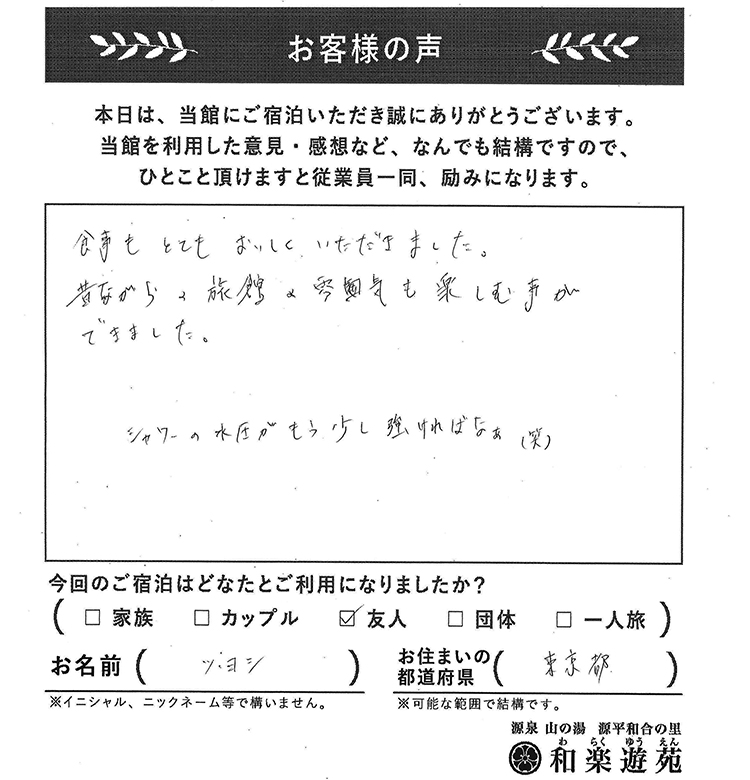 お客様の声
本日は、当館にご宿泊いただき誠にありがとうございます。
当館を利用した意見・感想など、なんでも結構ですので、
ひとこと頂けますと従業員一同、励みになります。
食事もとてもおいしくいただきました。
昔ながらの旅館の雰囲気も楽しむ事が
できました。
シャワーの水圧がもう少し強ければなぁ(笑)
今回のご宿泊はどなたとご利用になりましたか?
( □ 家族 □ カップル ☑ 友人 □ 団体 □ 一人旅 )
お名前 ( ツヨシ )
お住まいの都道府県 ( 東京都 )
※イニシャル、ニックネーム等で構いません。
※可能な範囲で結構です。
源泉 山の湯 源平和合の里
わ らく ゆう えん
和楽遊苑